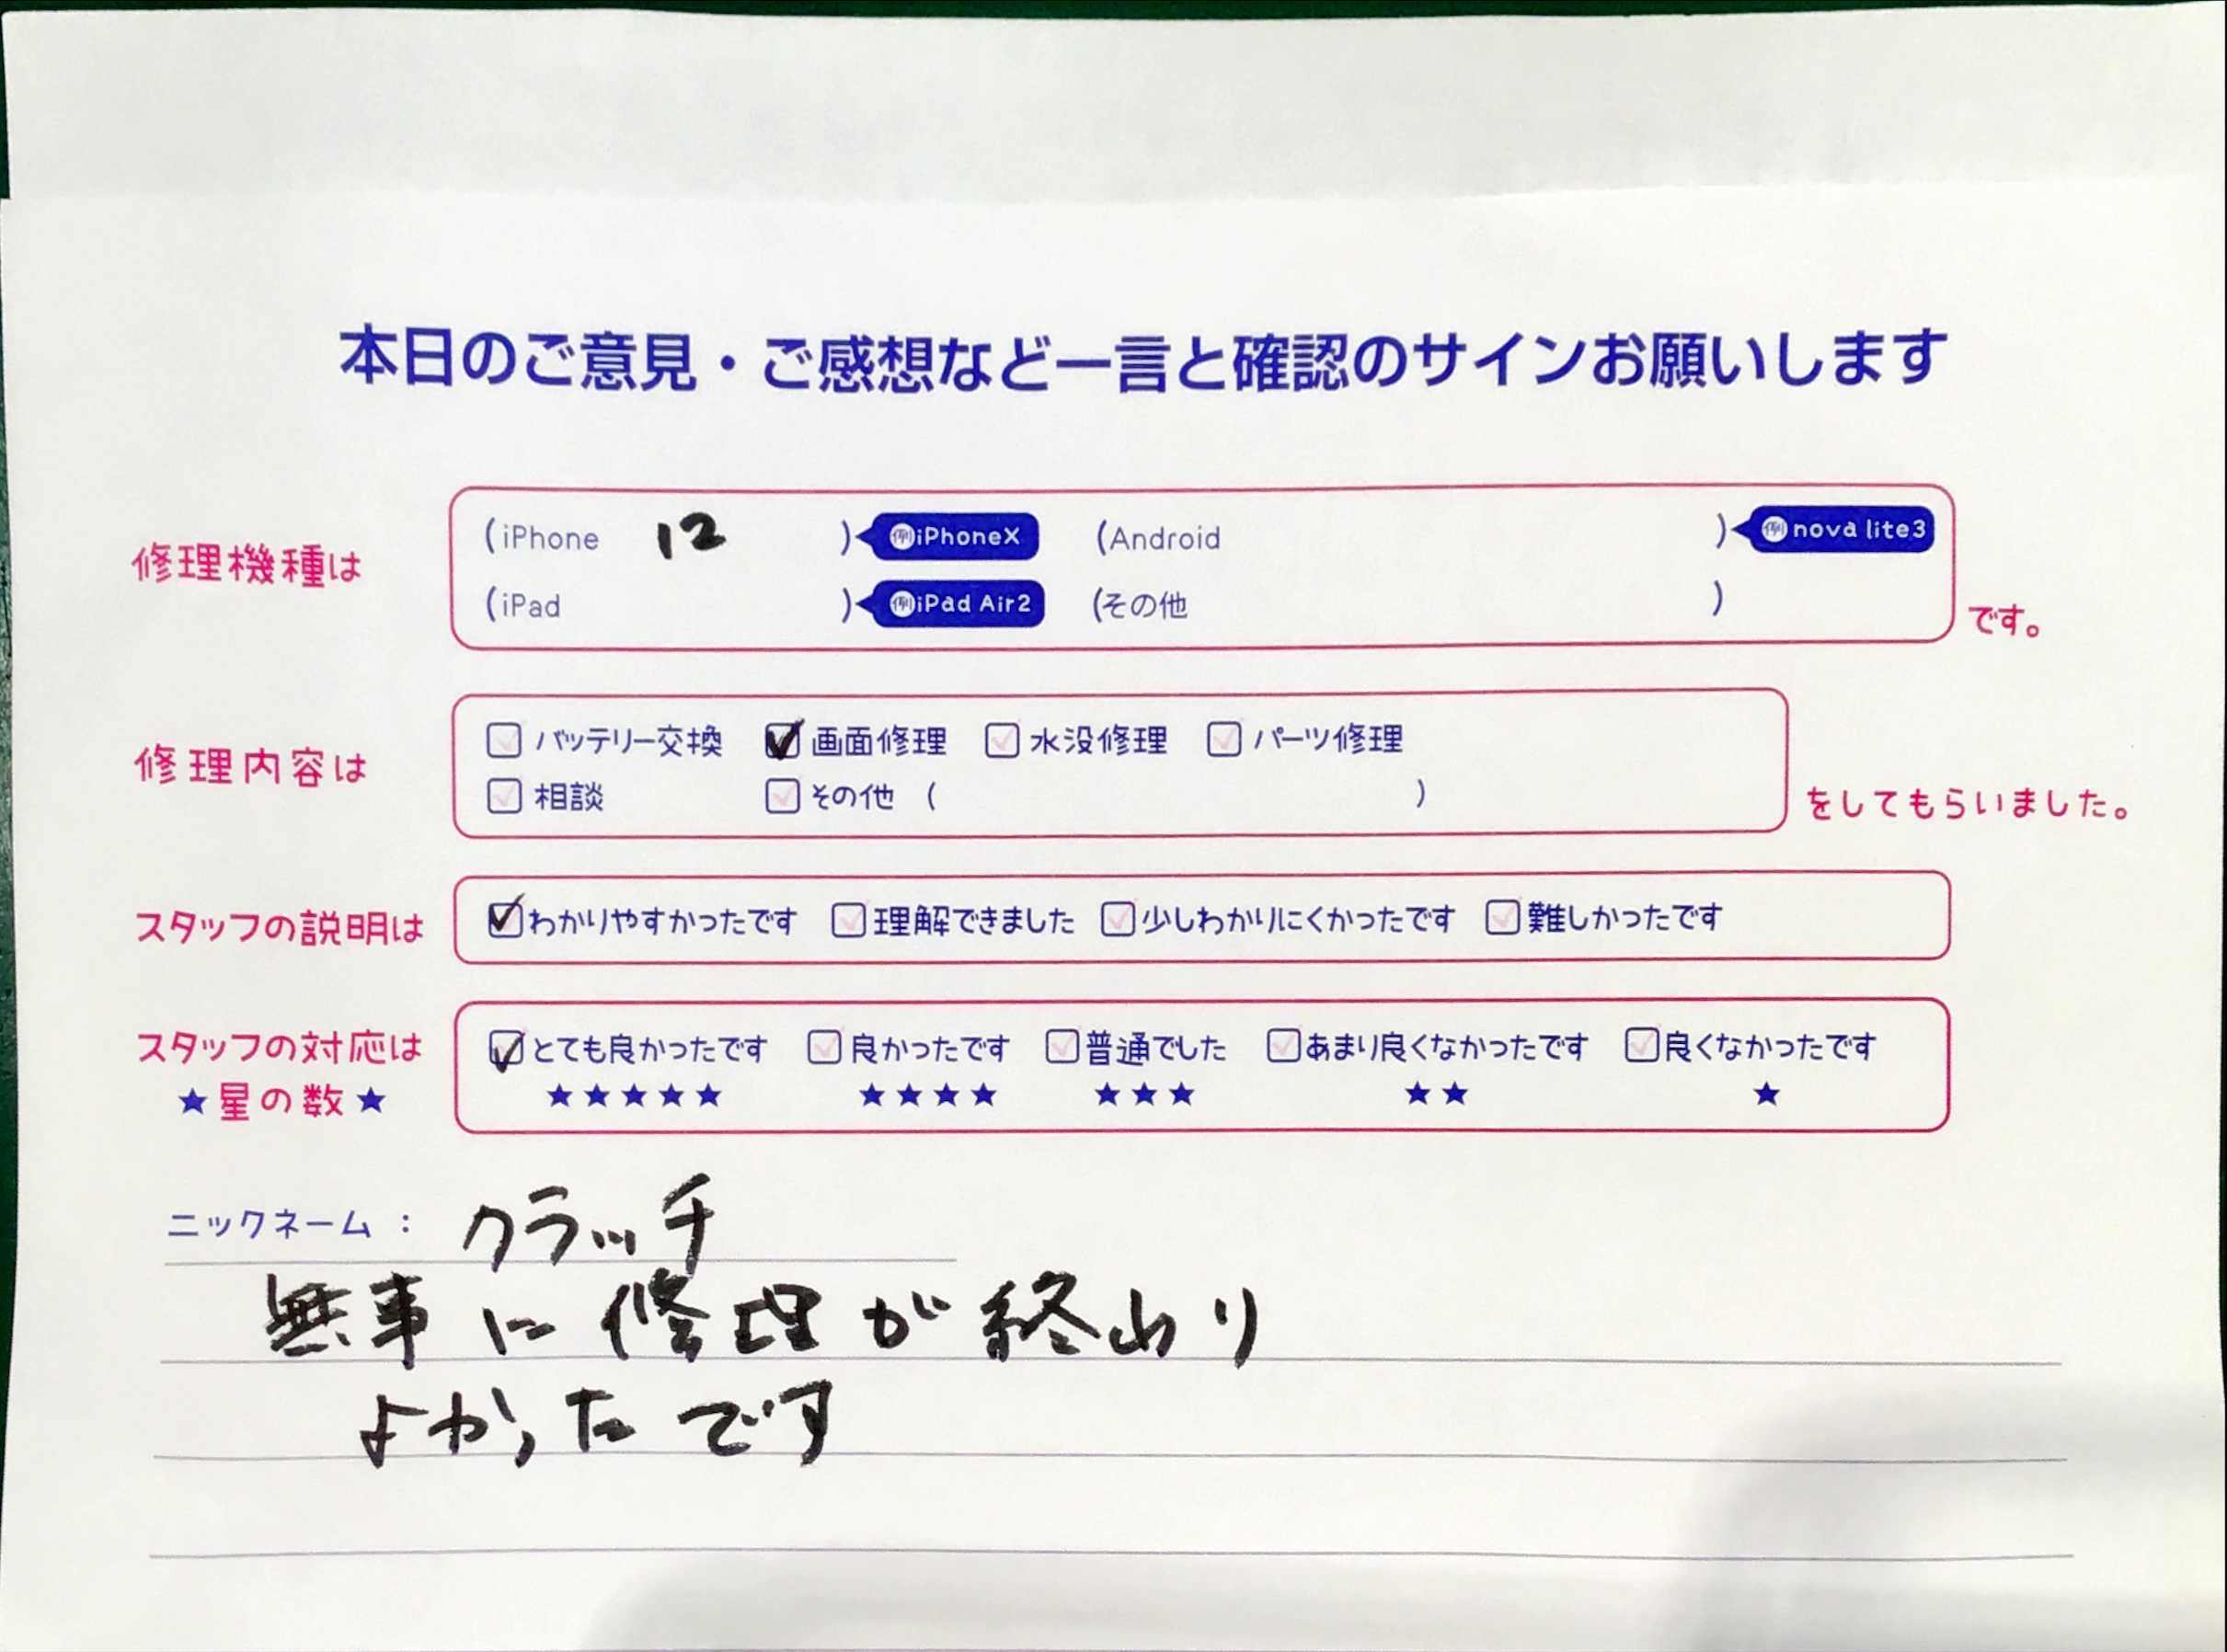 本日のご意見・ご感想など一言と確認のサインお願いします
修理機種は (iPhone 12 ) 例iPhoneX (Android ) 例nova lite3
(iPad ) 例iPad Air2 (その他 ) です。
修理内容は バッテリー交換 画面修理 水没修理 パーツ修理
相談 その他 ( ) をしてもらいました。
スタッフの説明は わかりやすかったです 理解できました 少しわかりにくかったです 難しかったです
スタッフの対応は とても良かったです 良かったです 普通でした あまり良くなかったです 良くなかったです
★星の数★ ★★★★★ ★★★★ ★★★ ★★ ★
ニックネーム： クラッチ
無事に修理が終わり
よかったです